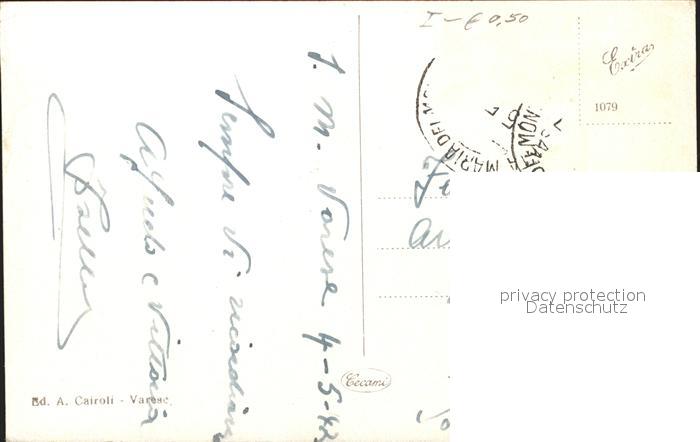 I - € 0,50
Extra
1079
S. M. Varese 4-5-42
Sempre Vi ricordiam
Alfredo e Vittoria
MARIA DEL M
DEL MON
Cecami
privacy protection
Datenschutz
Ed. A. Cairoli - Varese